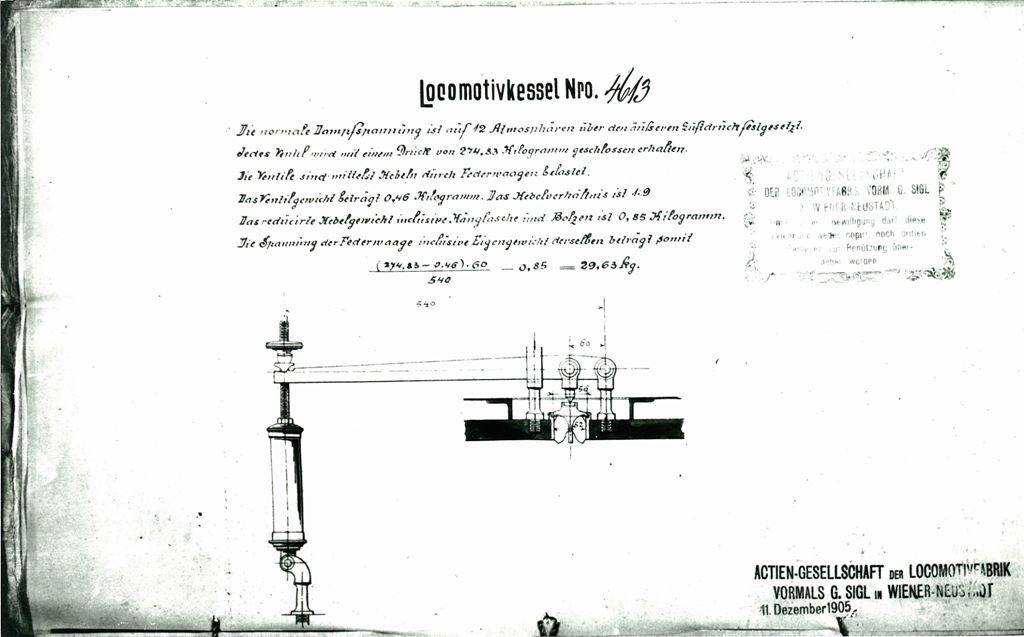 Locomotivkessel Nro. 4613
Die normale Dampfspannung ist auf 12 Atmosphären über den äußeren Luftdruck festgesetzt.
Jedes Ventil wird mit einem Druck von 274,83 Kilogramm geschlossen erhalten.
Die Ventile sind mittelst Hebeln durch Federwaagen belastet.
Das Ventilgewicht beträgt 0,46 Kilogramm. Das Hebelverhältnis ist 1:9
Das reducirte Hebelgewicht inclusive Hänglasche und Bolzen ist 0,85 Kilogramm.
Die Spannung der Federwaage inclusive Eigengewicht derselben beträgt somit
(274,83 – 0,46) . 60
540
– 0,85 = 29,63 kg.
540
60
DER LOCOMOTIVFABRIK VORM. G. SIGL
WIENER-NEUSTADT.
Bewilligung darf diese
weder copirt, noch dritten
zur Benützung über-
geben werden
ACTIEN-GESELLSCHAFT DER LOCOMOTIVFABRIK
VORMALS G. SIGL IN WIENER-NEUSTADT
11. Dezember 1905